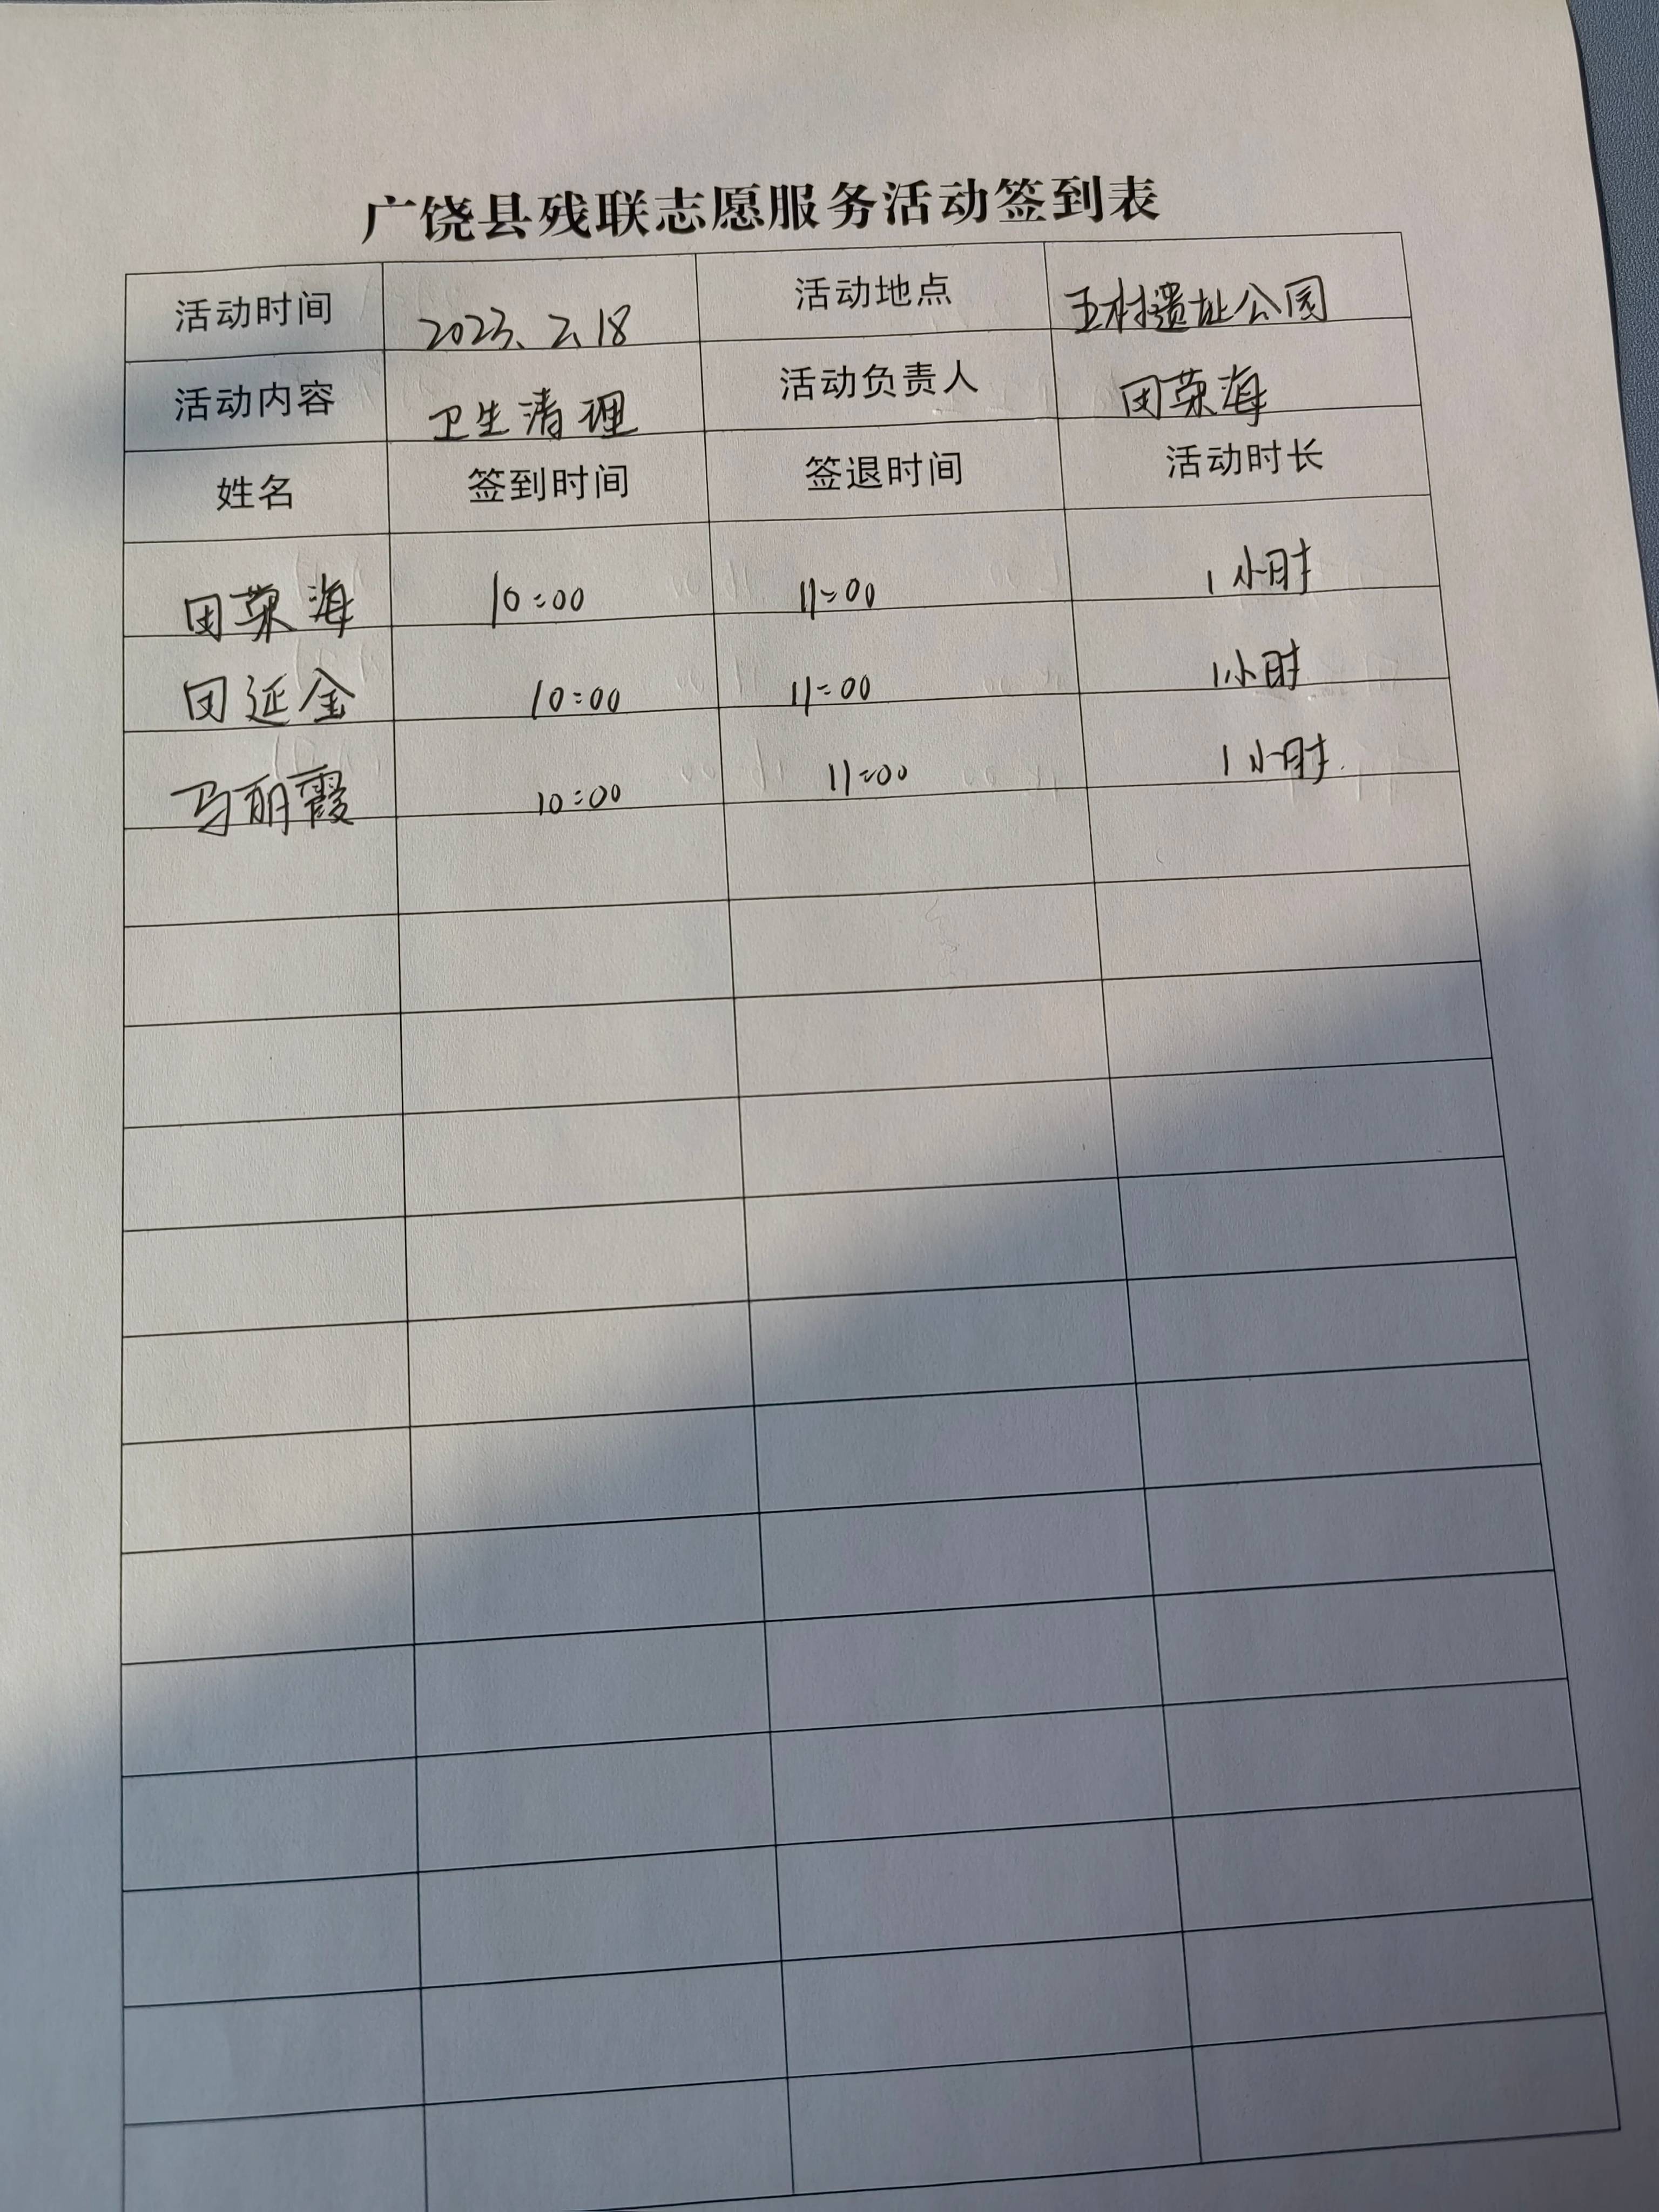 广饶县残联志愿服务活动签到表
活动时间 2023.2.18 活动地点 五村遗址公园
活动内容 卫生清理 活动负责人 田荣海
姓名 签到时间 签退时间 活动时长
田荣海 10:00 11:00 1小时
田延金 10:00 11:00 1小时
马丽霞 10:00 11:00 1小时